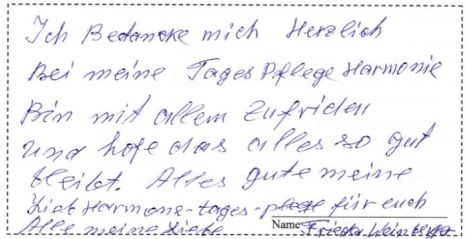 Ich Bedancke mich Herzlich
Bei meine Tages Pflege Harmonie
Bin mit allem Zufriden
und hofe das alles so gut
bleibt. Alles gute meine
Liebt Harmonie-tages-plege für euch
Alle meine Liebe Name Frieda Weinberger